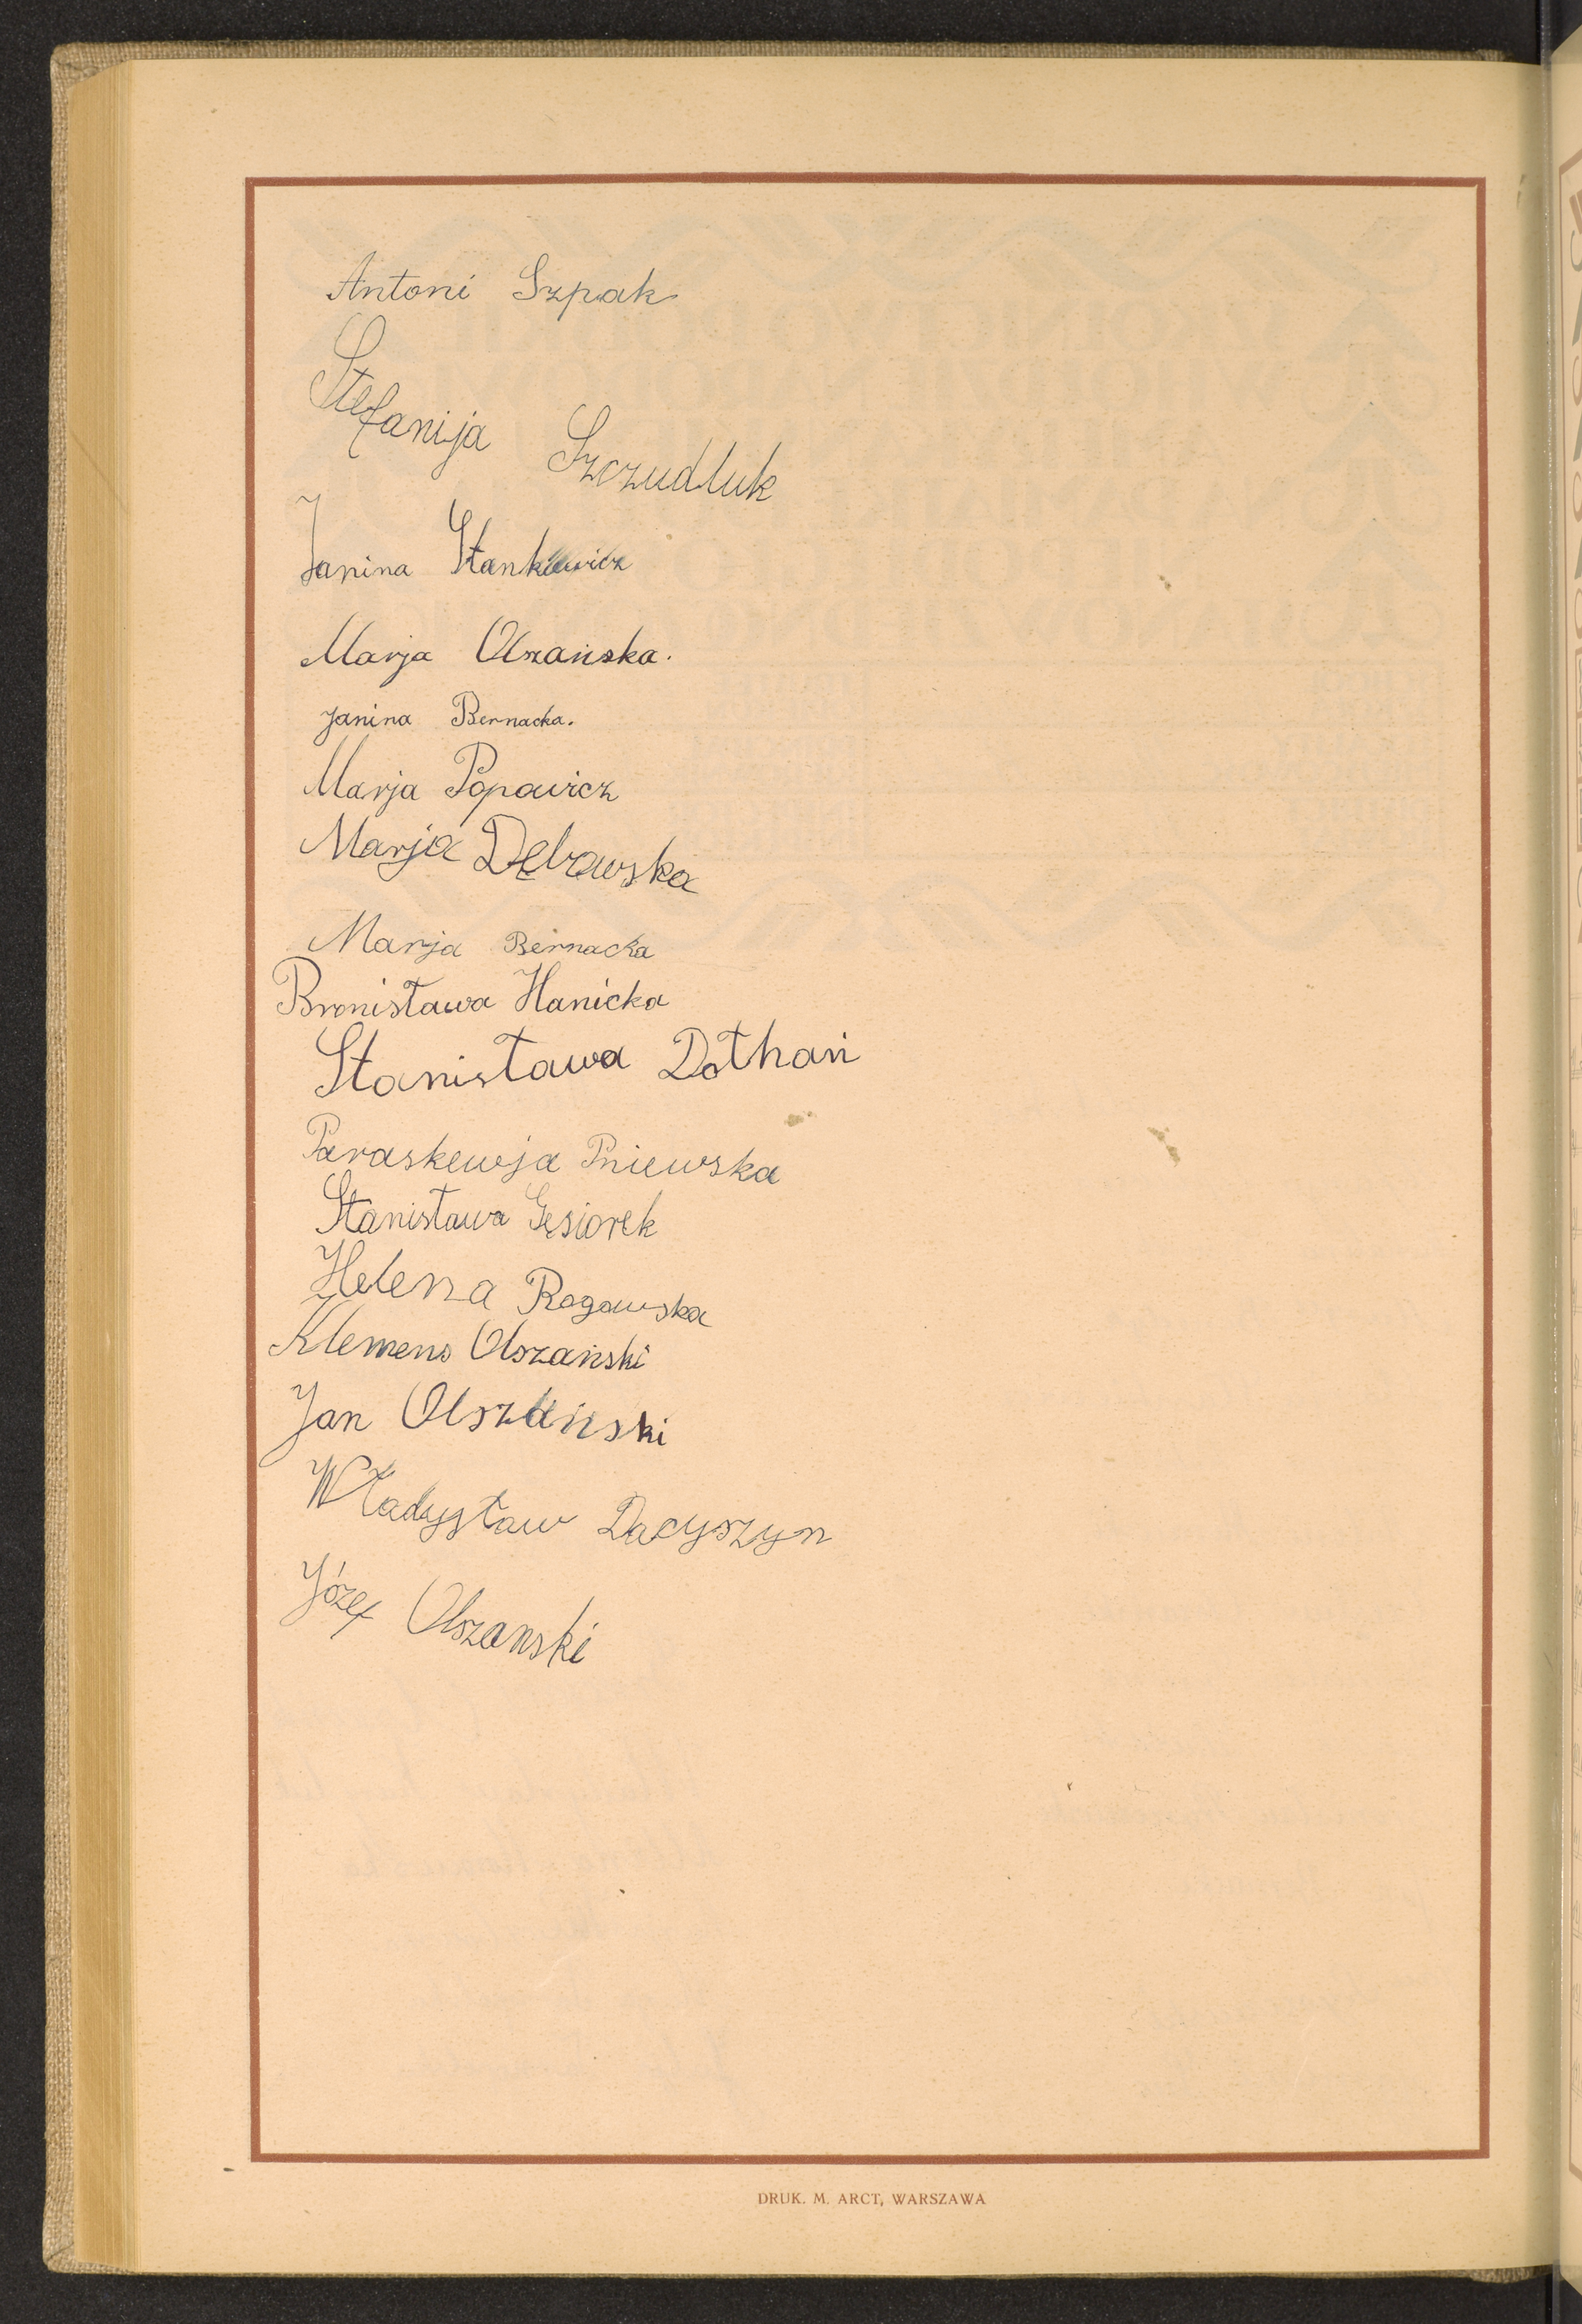 Antoni Szpak
Stefanija Szczudluk
Janina Stankiewicz
Marja Olszańska.
Janina Bernacka.
Marja Popowicz
Marja Dębrowska
Marja Bernacka
Bronisława Hanicka
Stanisława Dołhań
Paraskewja Pniewska
Stanisława Gęsiorek
Helena Rogowska
Klemens Olszański
Jan Olszański
Władysław Dacyszyn
Józef Olszanski
DRUK. M. ARCT, WARSZAWA